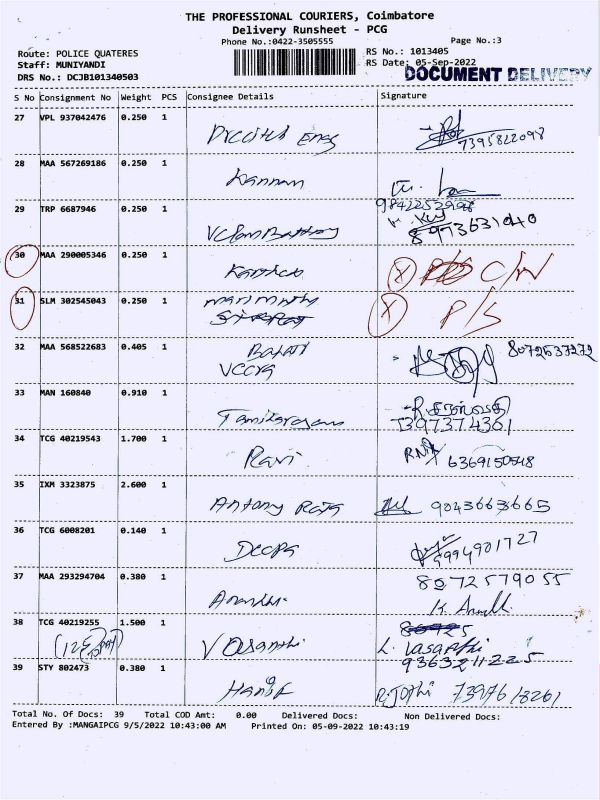 THE PROFESSIONAL COURIERS, Coimbatore
Delivery Runsheet - PCG
Phone No.:0422-3505555
Page No.:3
Route: POLICE QUATERES
RS No.: 1013405
Staff: MUNIYANDI
RS Date: 05-Sep-2022
DRS No.: DCJB101340503
DOCUMENT DELIVERY
S No Consignment No Weight PCS Consignee Details Signature
27 VPL 937042476 0.250 1
7395822098
28 MAA 567269186 0.250 1 Kannan
9842252998
29 TRP 6687946 0.250 1
8973631040
30 MAA 290005346 0.250 1 X C/N
31 SLM 302545043 0.250 1 X P/S
32 MAA 568522683 0.405 1 Balaji
VCCPG
8072637272
33 MAN 160840 0.910 1
7397374361
34 TCG 40219543 1.700 1 Ravi
6369150548
35 IXM 3323875 2.600 1 Antony Raja 9043663665
36 TCG 6008201 0.140 1 DCCPG
9994901727
37 MAA 293294704 0.380 1 Anandhi
8072579055
38 TCG 40219255 1.500 1 Vasanthi L. Vasanthi
9363211225
39 STY 802473 0.380 1 Hanif R. Jothi
Total No. Of Docs: 39 Total COD Amt: 0.00 Delivered Docs: Non Delivered Docs:
Entered By :MANGAIPCG 9/5/2022 10:43:00 AM Printed On: 05-09-2022 10:43:19